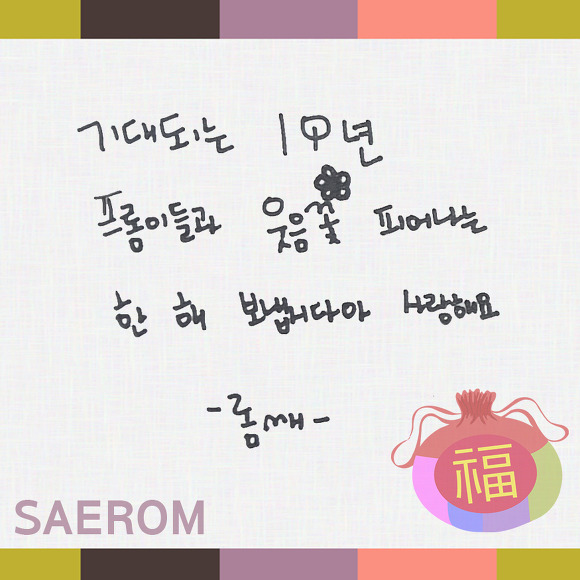 기대되는 19년
프롬이들과 웃음꽃 피어나는
한 해 보냅시다아 사랑해요
-롬쌔-
福
SAEROM